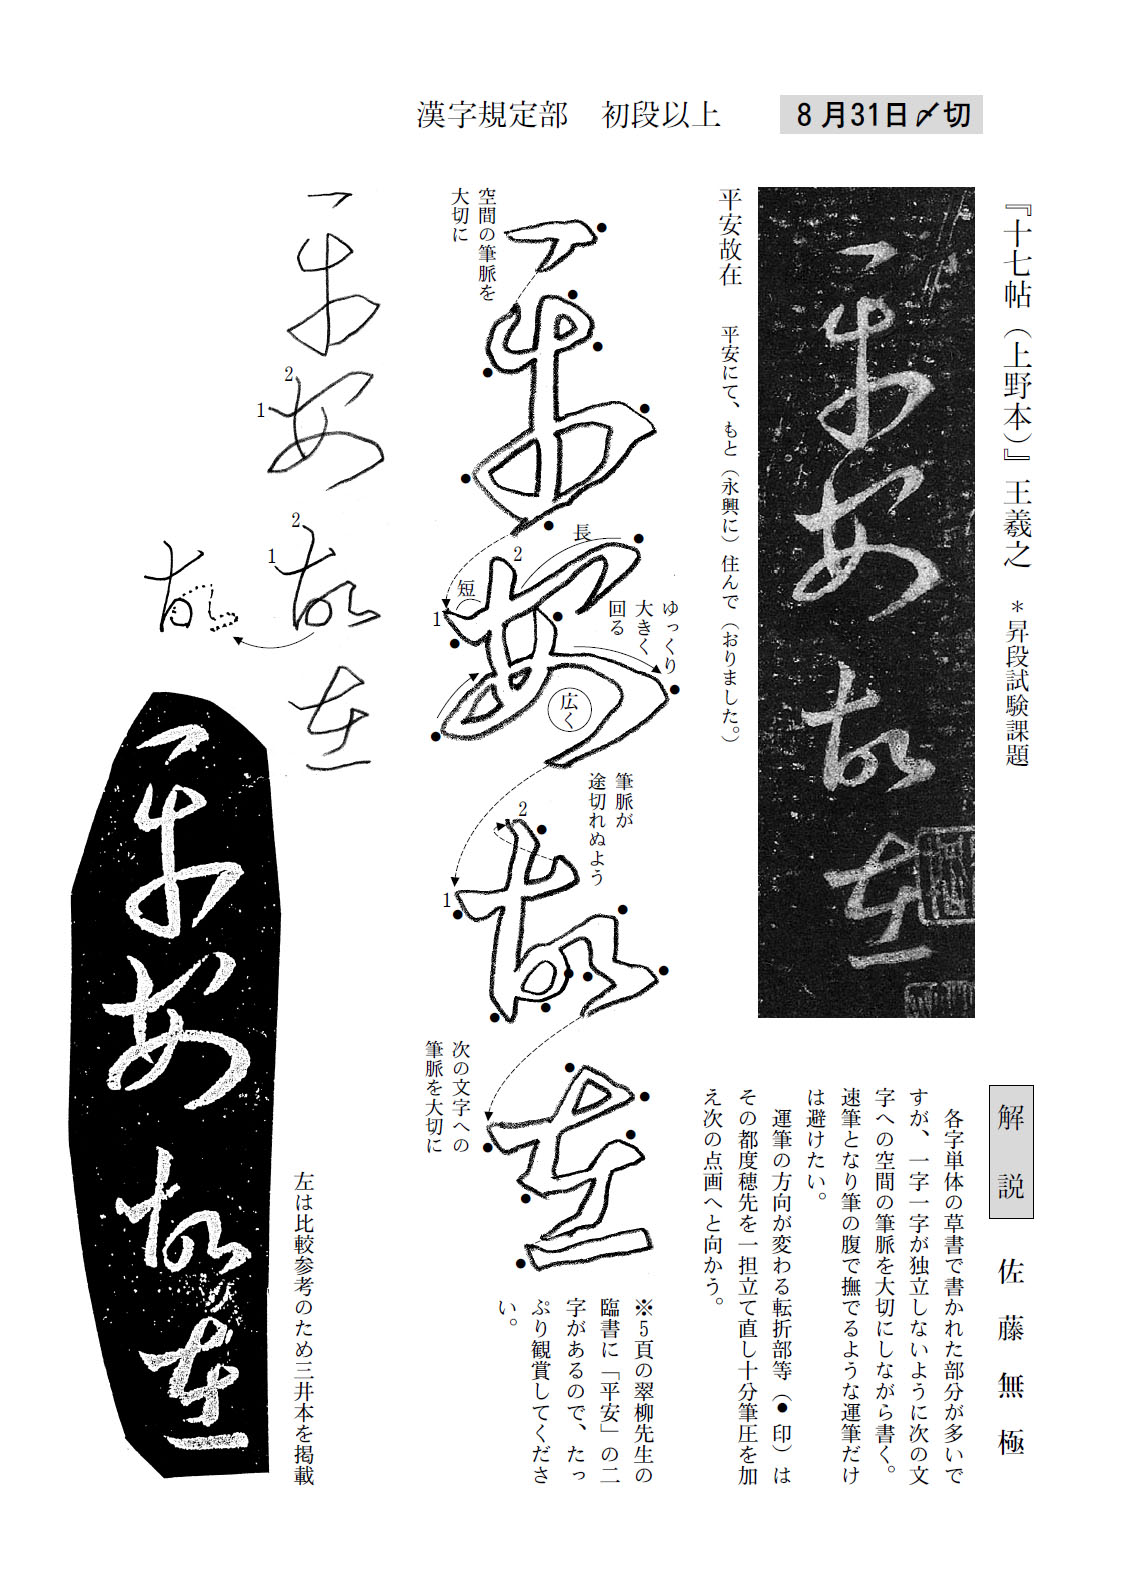 漢字規定部　初段以上
8月31日〆切
『十七帖（上野本）』王羲之　＊昇段試験課題
平安故在
平安故在　平安にて、もと（永興に）住んで（おりました。）
空間の筆脈を
大切に
長
2
短
1
ゆっくり
大きく
回る
広く
筆脈が
途切れぬよう
2
1
次の文字への
筆脈を大切に
平安故在
2
1
2
1
平安故在
左は比較参考のため三井本を掲載
解説　佐藤無極
各字単体の草書で書かれた部分が多いで
すが、一字一字が独立しないように次の文
字への空間の筆脈を大切にしながら書く。
速筆となり筆の腹で撫でるような運筆だけ
は避けたい。
運筆の方向が変わる転折部等（●印）は
その都度穂先を一担立て直し十分筆圧を加
え次の点画へと向かう。
※5頁の翠柳先生の
臨書に「平安」の二
字があるので、たっ
ぷり観賞してくださ
い。